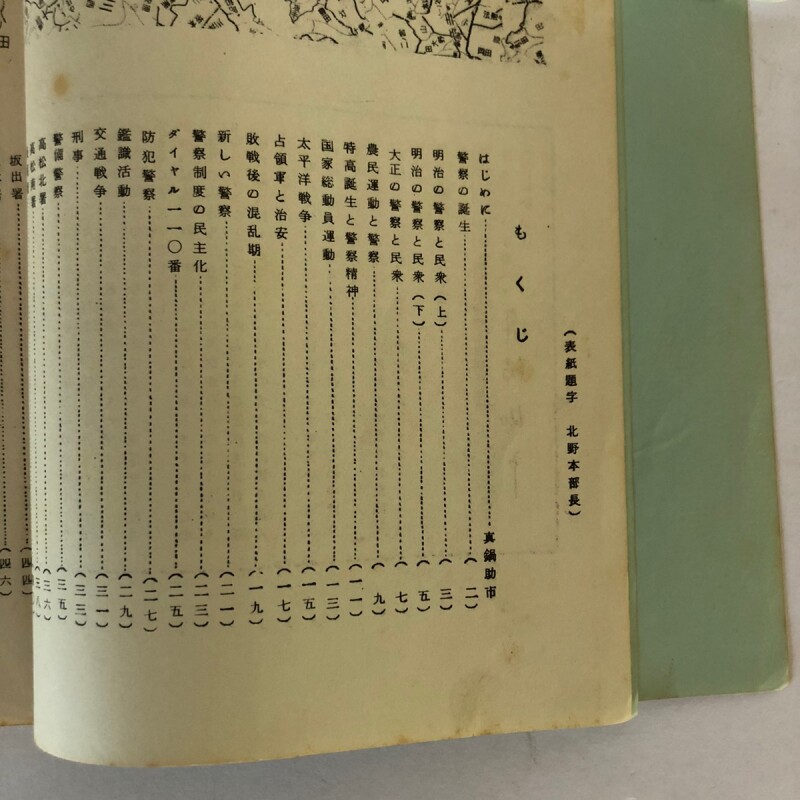 (表紙題字　北野本部長)
もくじ
はじめに……真鍋助市
警察の誕生……(二)
明治の警察と民衆(上)……(三)
明治の警察と民衆(下)……(五)
大正の警察と民衆……(七)
農民運動と警察……(九)
特高誕生と警察精神……(一一)
国家総動員運動……(一三)
太平洋戦争……(一五)
占領軍と治安……(一七)
敗戦後の混乱期……(一九)
新しい警察……(二一)
警察制度の民主化……(二三)
ダイヤル一一〇番……(二五)
防犯警察……(二七)
鑑識活動……(二九)
交通戦争……(三一)
刑事……(三三)
警備警察……(三五)
高松北署……(三六)
高松南署……(三八)
坂出署……(四四)
(四六)